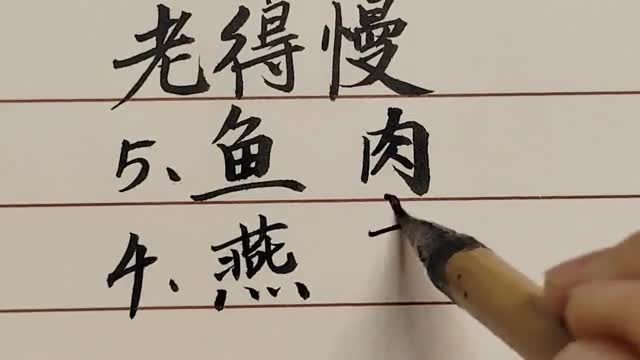 老得慢
5、鱼肉
4、燕